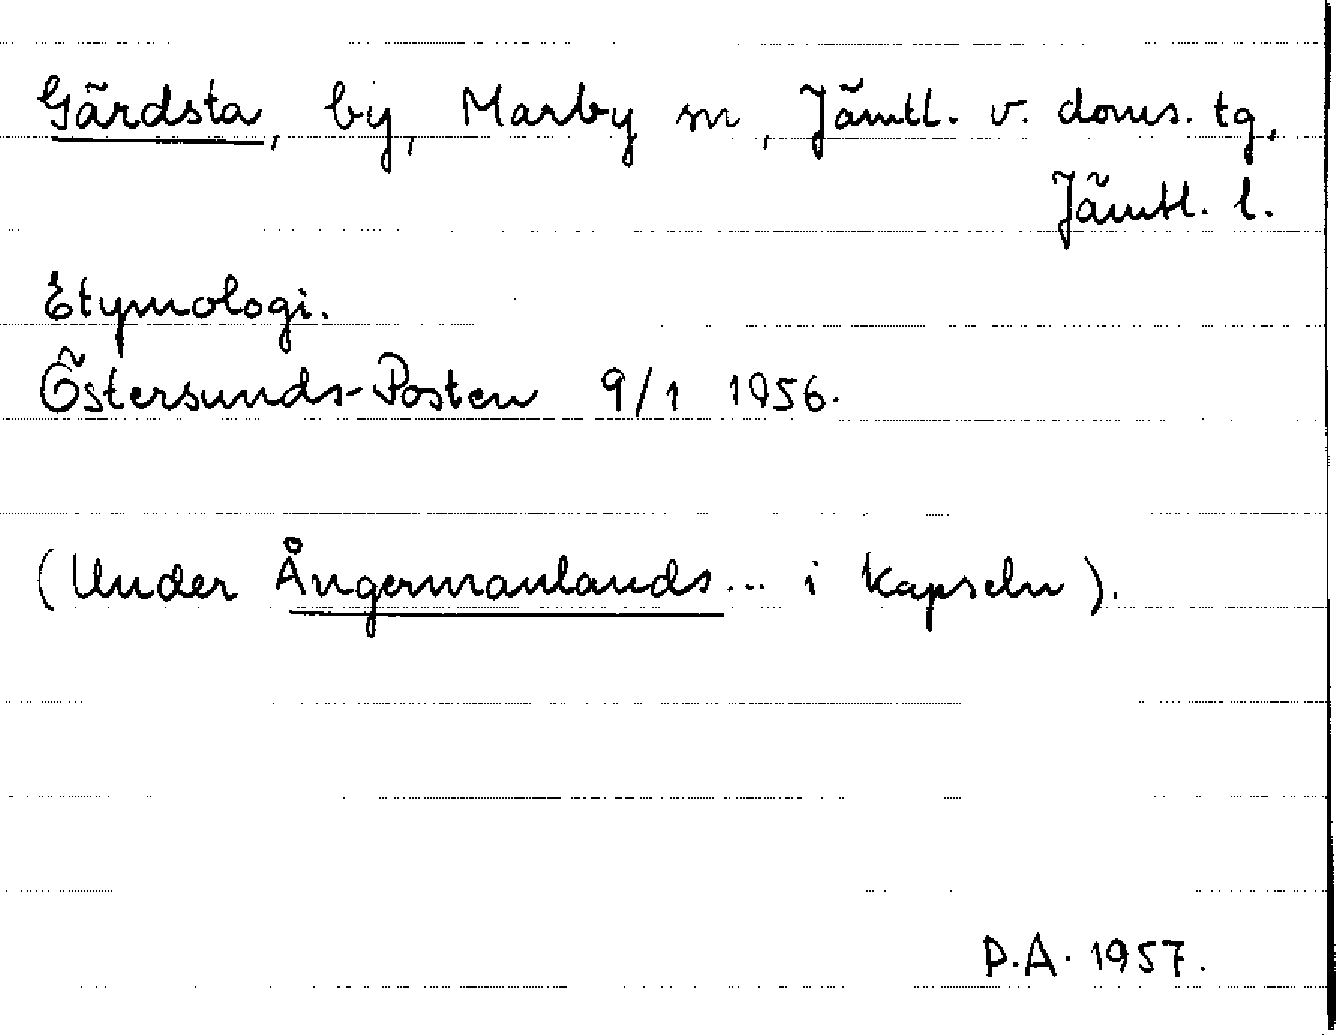 Gärdsta, by, Marby sn, Jämtl. v. doms. tg,
Jämtl. l.
Etymologi.
Östersunds-Posten 9/1 1956.
(Under Ångermanlands... i kapseln).
D.A. 1957.